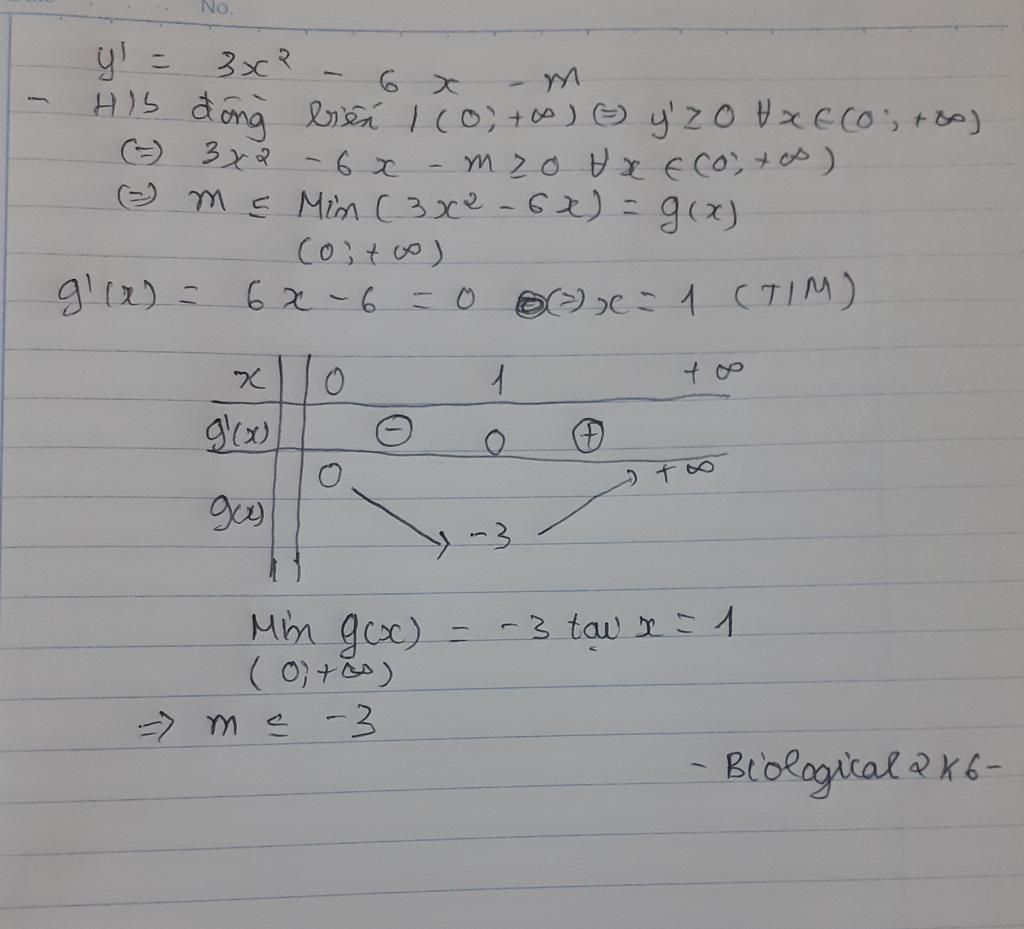 No.
y' = 3x² - 6x - m
- H/S đồng biến / (0; +∞) (=) y' ≥ 0 ∀x ∈ (0; +∞)
(=) 3x² - 6x - m ≥ 0 ∀x ∈ (0; +∞)
(=) m ≤ Min (3x² - 6x) = g(x)
(0; +∞)
g'(x) = 6x - 6 = 0 (=) x = 1 (T/M)
x 0 1 +∞
g'(x) - 0 +
0 +∞
g(x) -3
Min g(x) = -3 tại x = 1
(0; +∞)
=> m ≤ -3
- Biological 2K6 -